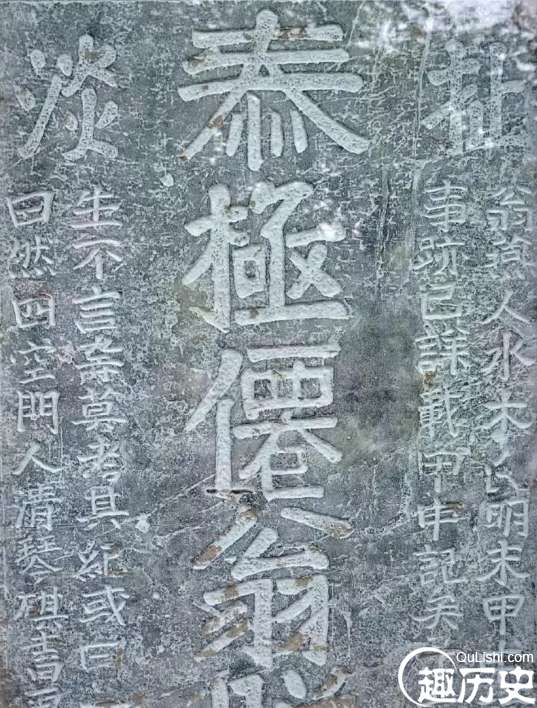 翁人水木明末甲
事跡已詳載甲申記矣
泰極僊翁
淡
生不言壽莫考其紀或曰
曰然四空門人琴棋書
QuLishi.com
趣历史